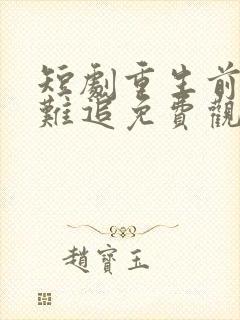 短劇重生前
難追免費觀
趙寶玉